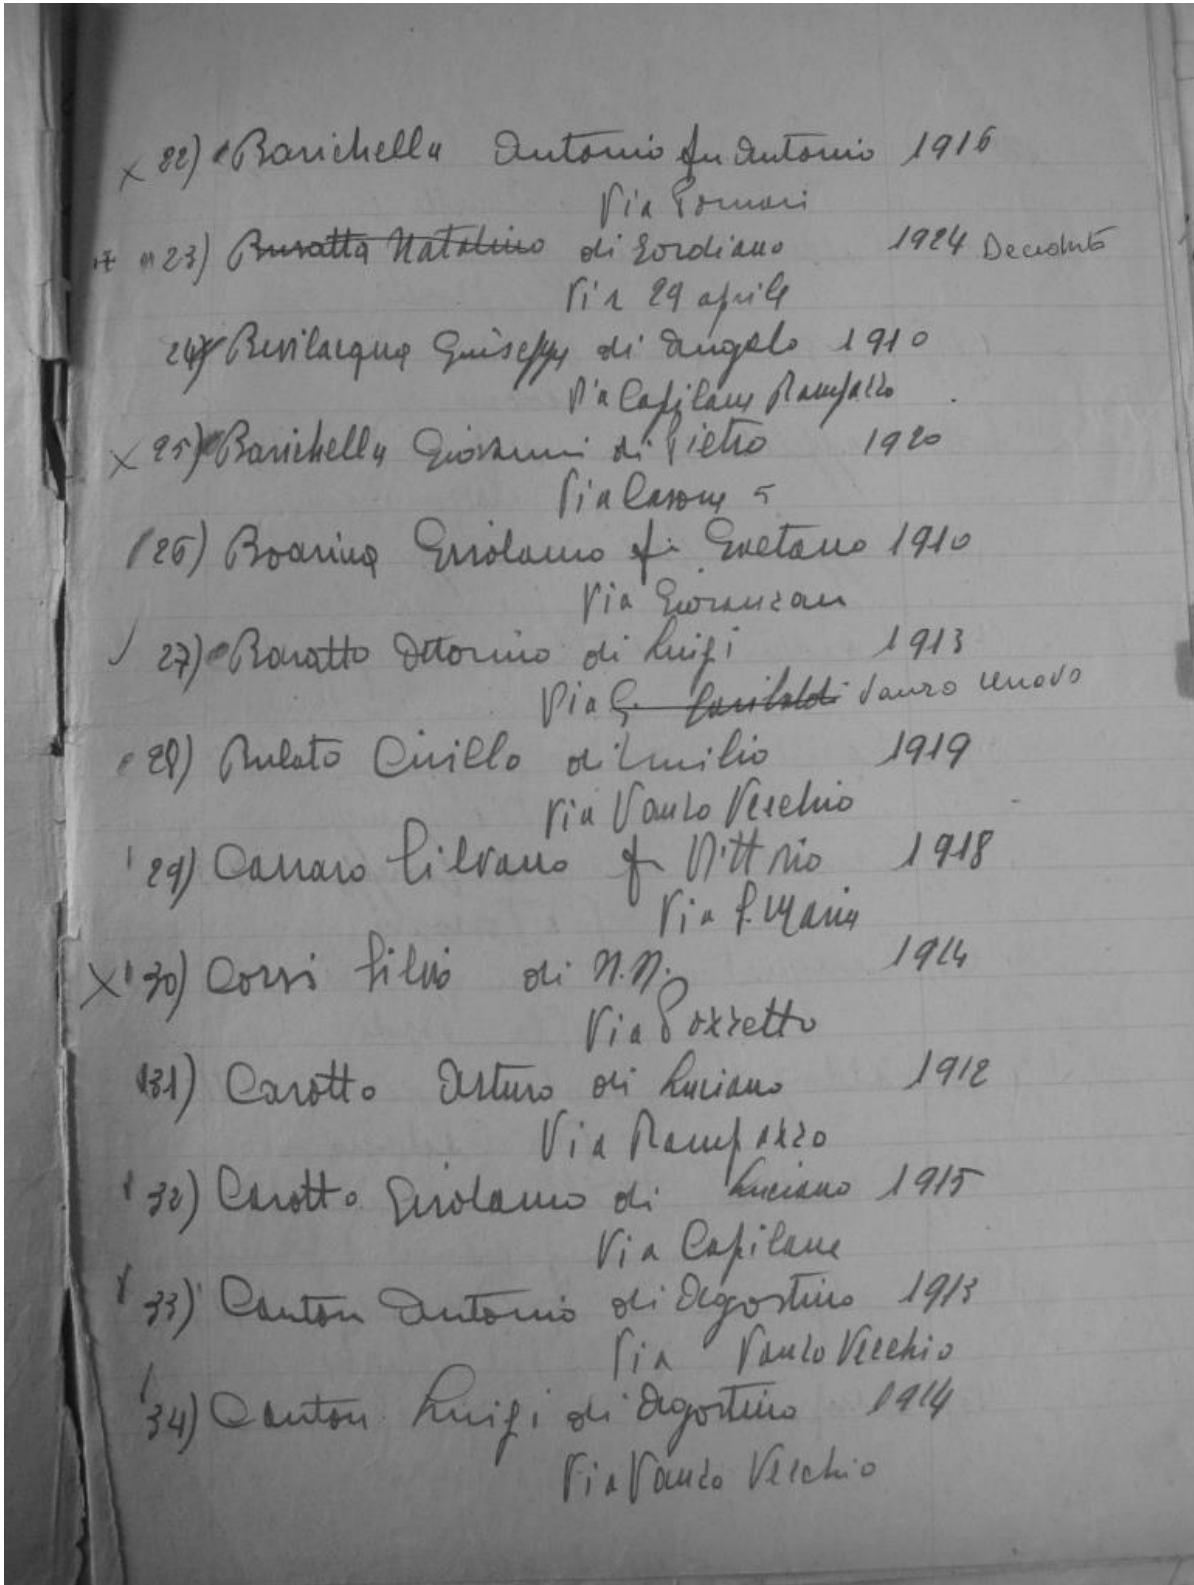 x 22) Barichella Antonio fu Antonio 1916
Via Pomari
23) Busatta Natalino di Gordiano 1924 Deceduto
Via 29 aprile
24) Bevilacqua Giuseppe di Angelo 1910
Via Capilane Rampazzo
x 25) Barichella Giovanni di Pietro 1920
Via Casone 5
26) Boarina Girolamo fu Gaetano 1910
Via Gioranzan
27) Baratto Ottorino di Luigi 1913
Via G. Garibaldi Vanzo nuovo
28) Bulato Cirillo di Emilio 1919
Via Vanzo Vecchio
29) Carraro Silvano fu Vittorio 1918
Via S. Maria
X 30) Corsi Silvio di N.N. 1914
Via Pozzetto
31) Carotto Arturo di Luciano 1912
Via Rampazzo
32) Carotto Girolamo di Luciano 1915
Via Capilane
33) Canton Antonio di Agostino 1913
Via Vanzo Vecchio
34) Canton Luigi di Agostino 1914
Via Vanzo Vecchio